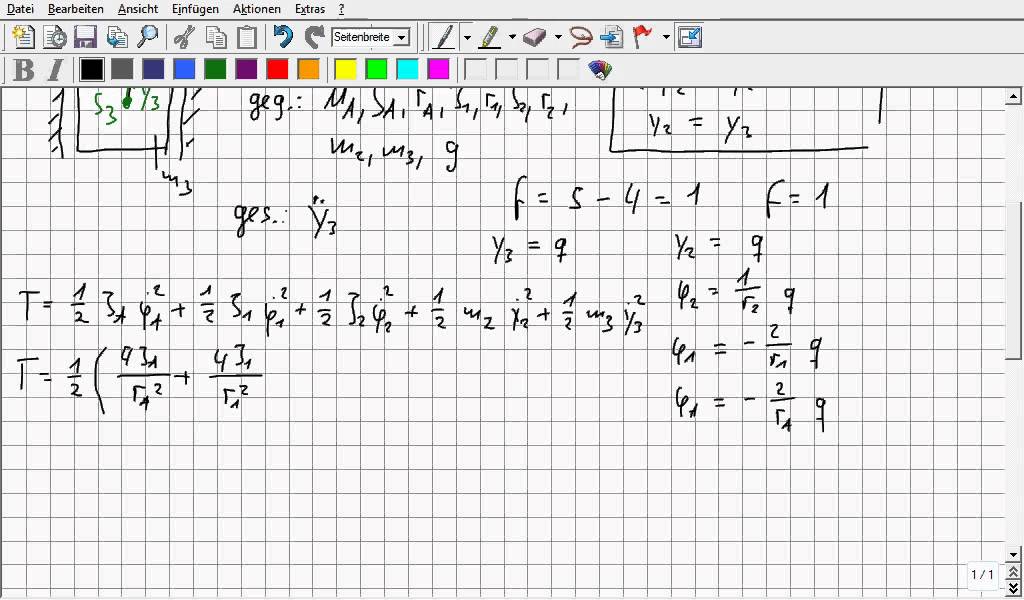 Datei Bearbeiten Ansicht Einfügen Aktionen Extras ?
Seitenbreite
B I
S₃ y₃
m₃
geg.: M_A, J_A, r_A, J₁, r₁, J₂, r₂,
m₂, m₃, g
y₂ = y₃
ges.: ÿ₃
f = 5 - 4 = 1 f = 1
y₃ = q y₂ = q
T = 1/2 J_A φ̇_A² + 1/2 J₁ φ̇₁² + 1/2 J₂ φ̇₂² + 1/2 m₂ ẏ₂² + 1/2 m₃ ẏ₃²
φ₂ = 1/r₂ q
φ₁ = - 2/r₁ q
T = 1/2 ( 4J_A/r_A² + 4J₁/r₁²
φ_A = - 2/r_A q
1 / 1